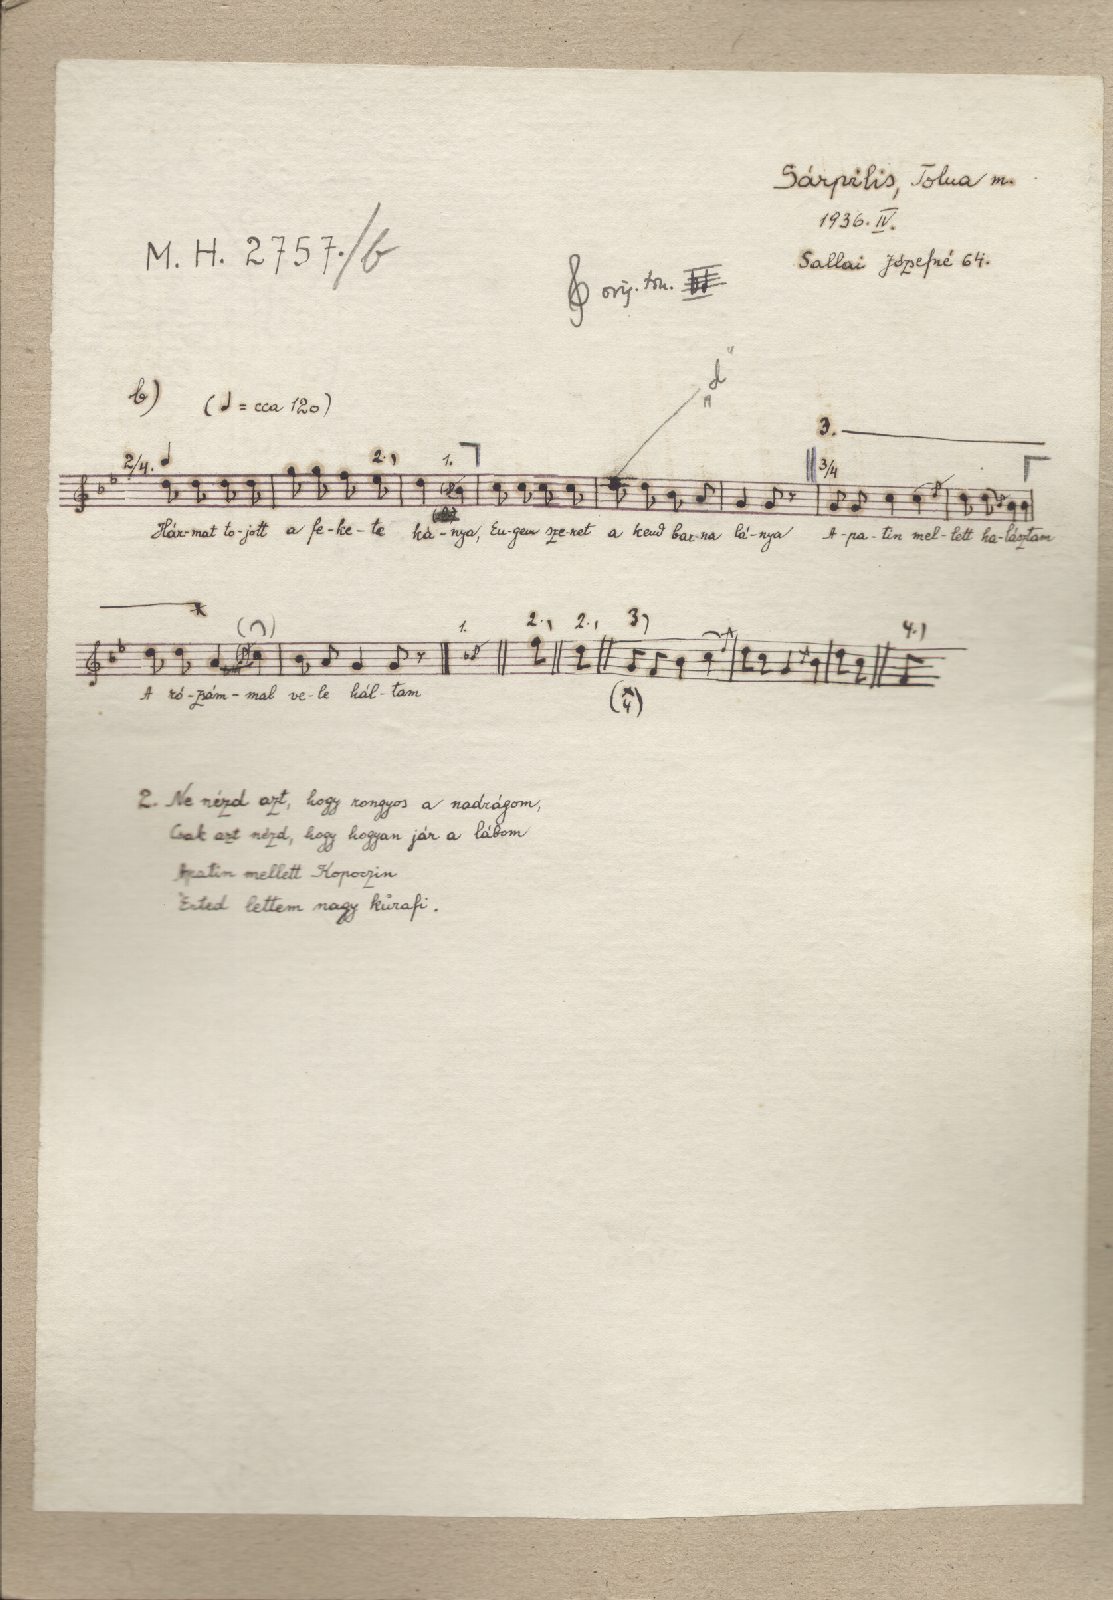 Sárpilis, Tolna m.
1936. IV.
Sallai Józsefné 64.
M. H. 2757./b
orig. ton.
"d"
b) (♩ = cca 120)
3.
2/4. 2., 1. 3/4
Hár-mat to-jott a fe-ke-te ká-nya, En-gem sze-ret a kend bar-na lá-nya A-pa-tin mel-lett ha-lásztam
1. 2., 2., 3, 4.,
A ró-zsám-mal ve-le hál-tam
2. Ne nézd azt, hogy rongyos a nadrágom,
Csak azt nézd, hogy hogyan jár a lábom
Apatin mellett Kopoczin
Érted lettem nagy kurafi.